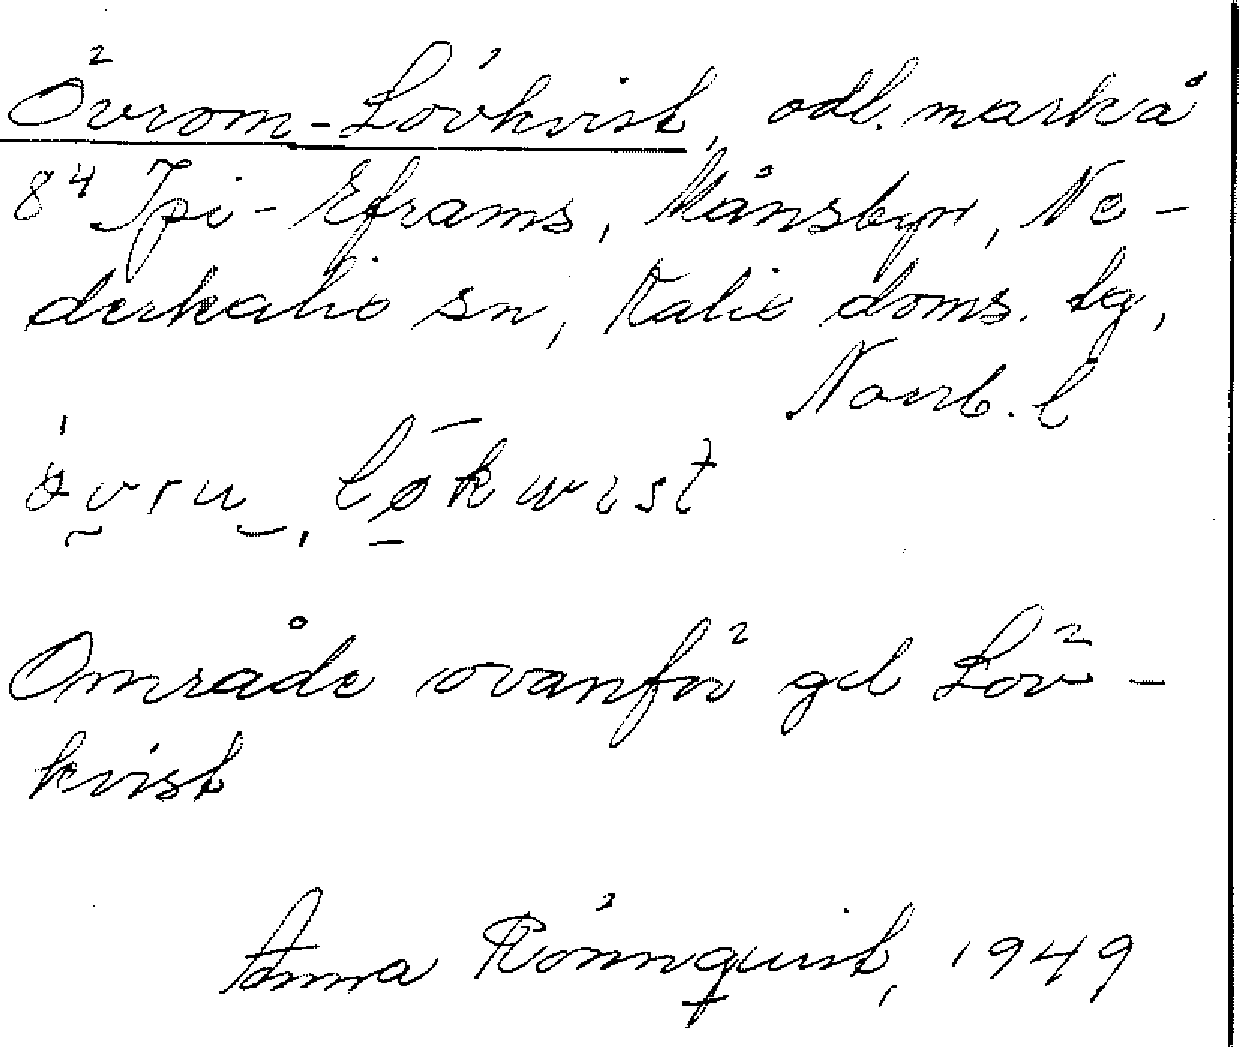 Övrom-Lövkvist, odl. mark å
8⁴ Ipi-Eframs, Månsbyn, Ne-
derkalix sn, Kalix doms. lg,
Norrb. l
Område ovanför gd Löv-
kvist
Anna Rönnquist, 1949